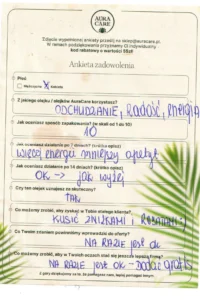 AURA
CARE
Zdjęcie wypełnionej ankiety prześlij na sklep@auracare.pl
W ramach podziękowania przyznamy Ci indywidualny
kod rabatowy o wartości 55zł!
Ankieta zadowolenia
Płeć
Mężczyzna X Kobieta
Z jakiego olejku / olejków AuraCare korzystasz?
ODCHUDZANIE, RADOŚĆ, ENERGIA
Jak oceniasz swoje opakowanie? (w skali od 1 do 10)
10
Jak oceniasz działanie po 7 dniach? (krótka opinia)
WIĘCEJ ENERGII MNIEJSZY APETYT
Jak oceniasz działanie po 14 dniach? (krótka opinia)
OK → jak wyżej
Czy ten olejek uznajesz za skuteczny?
TAK
Co możemy zrobić, aby zyskać w Tobie stałego klienta?
KUSIĆ ZNIŻKAMI
Co Twoim zdaniem powinniśmy wprowadzić do oferty?
NA RAZIE jest ok
Co możemy zrobić, aby w Twoich oczach stać się jeszcze lepszą firmą?
NA RAZIE jest OK - Dodać gratis